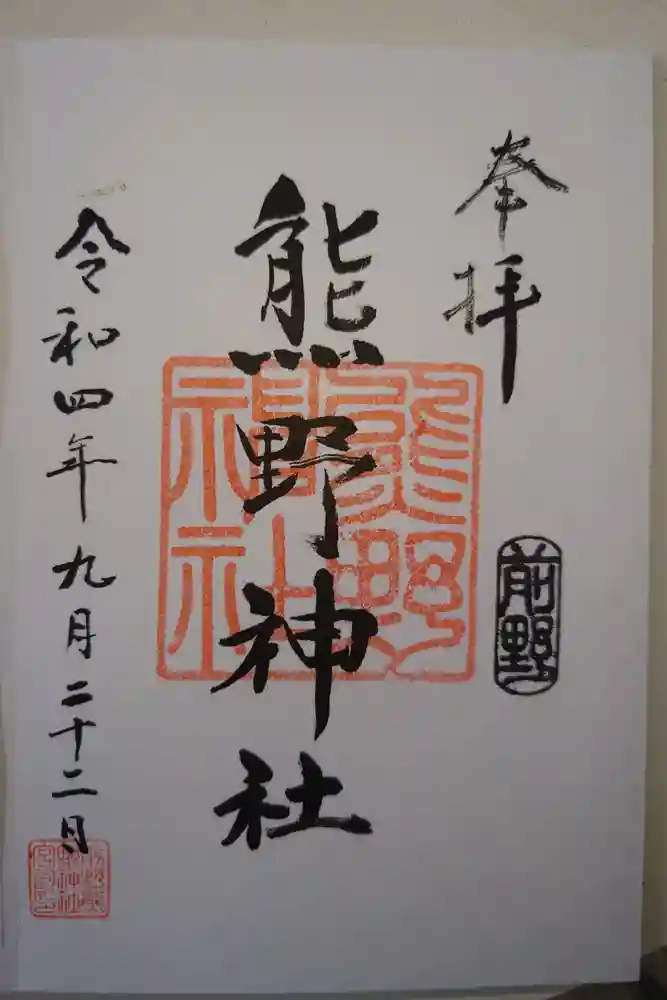 奉拝
前野
熊野神社
熊野神社
令和四年九月二十二日